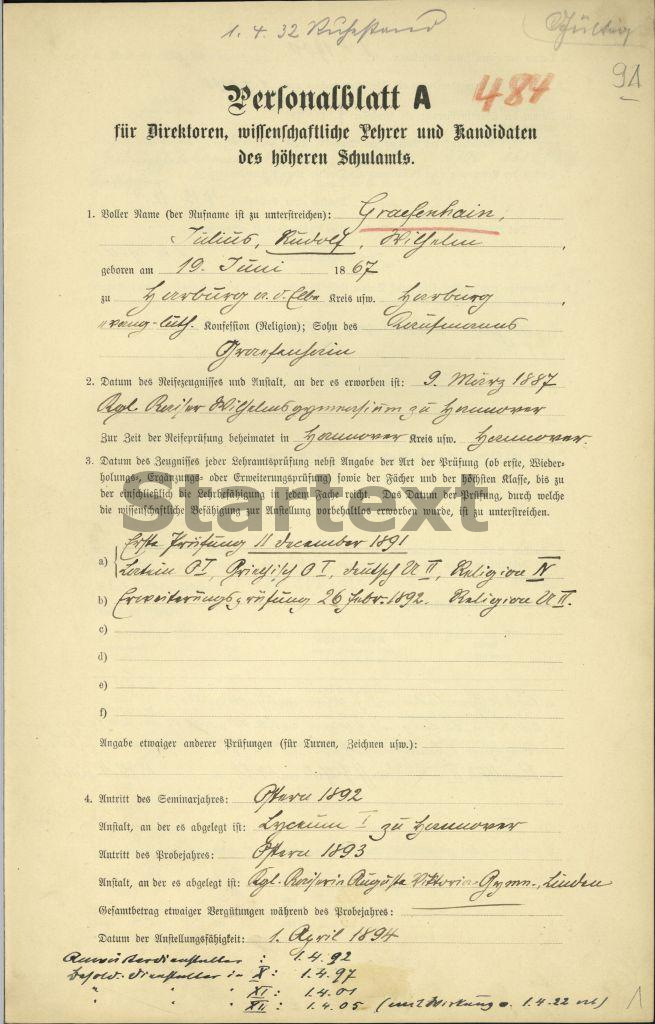 1. 4. 32 Ruhestand
Gültig
91
Personalblatt A 484
für Direktoren, wissenschaftliche Lehrer und Kandidaten
des höheren Schulamts.
1. Voller Name (der Rufname ist zu unterstreichen): Graefenhain,
Julius, Rudolf, Wilhelm,
geboren am 19. Juni 1867
zu Harburg a. d. Elbe Kreis usw. Harburg,
evang-luth. Konfession (Religion); Sohn des Kaufmanns
Graefenhain
2. Datum des Reifezeugnisses und Anstalt, an der es erworben ist: 9. März 1887
Kgl. Kaiser Wilhelmsgymnasium zu Hannover
Zur Zeit der Reifeprüfung beheimatet in Hannover Kreis usw. Hannover.
3. Datum des Zeugnisses jeder Lehramtsprüfung nebst Angabe der Art der Prüfung (ob erste, Wieder-
holungs-, Ergänzungs- oder Erweiterungsprüfung) sowie der Fächer und der höchsten Klasse, bis zu
der einschließlich die Lehrbefähigung in jedem Fache reicht. Das Datum der Prüfung, durch welche
die wissenschaftliche Befähigung zur Anstellung vorbehaltlos erworben wurde, ist zu unterstreichen.
Startext
Erste Prüfung 11 December 1891
a) Latein O I, Griechisch O I, deutsch U II, Religion IV
b) Erweiterungsprüfung 26 Febr. 1892. Religion U II.
c)
d)
e)
f)
Angabe etwaiger anderer Prüfungen (für Turnen, Zeichnen usw.):
4. Antritt des Seminarjahres: Ostern 1892
Anstalt, an der es abgelegt ist: Lyceum I zu Hannover
Antritt des Probejahres: Ostern 1893
Anstalt, an der es abgelegt ist: Kgl. Kaiserin Auguste Viktoria-Gymn., Linden
Gesamtbetrag etwaiger Vergütungen während des Probejahres:
Datum der Anstellungsfähigkeit: 1. April 1894
Anwärterdienstalter : 1.4.92
Besold. dienstalter in X : 1.4.97
" " XI : 1.4.01
" " XII : 1.4.05 (mit Wirkung v. 1.4.22 ab)